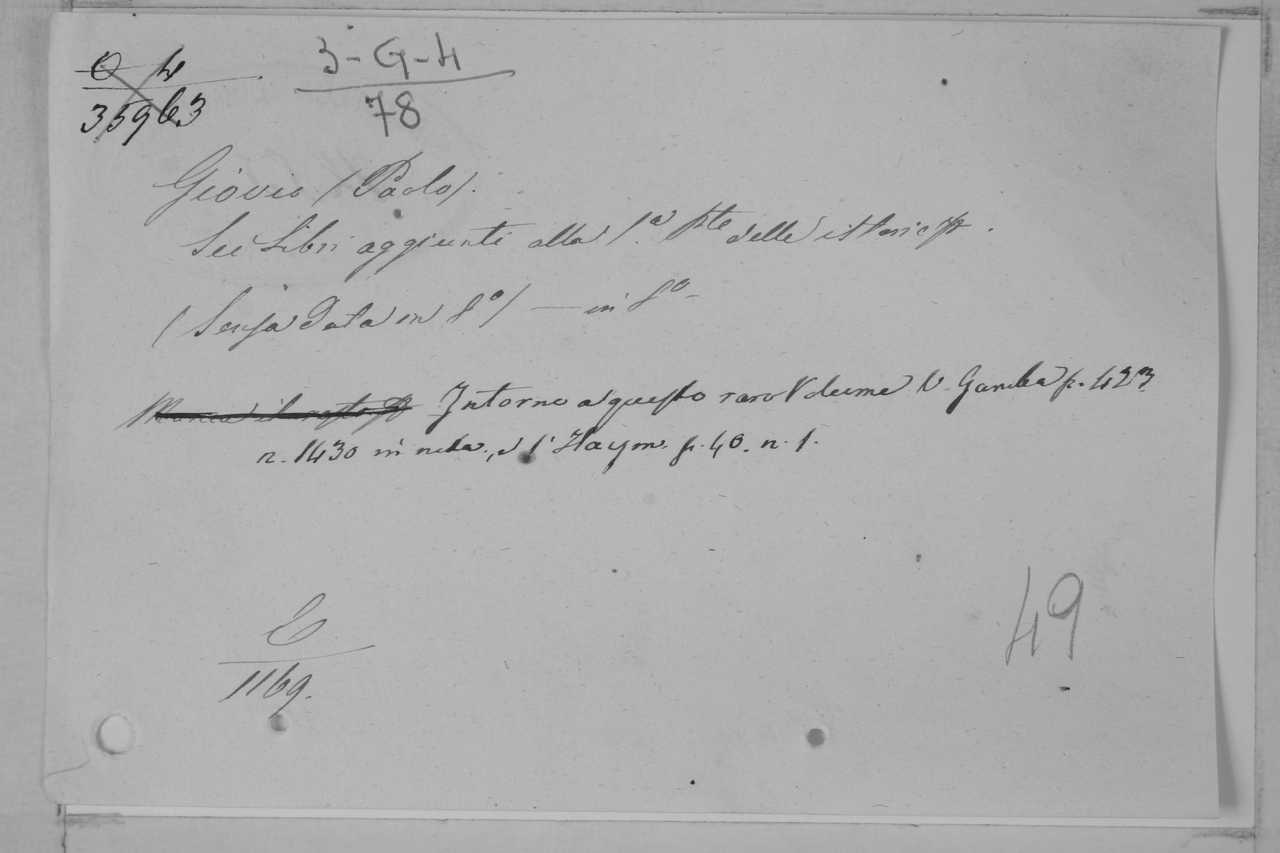 O 4
35963
3-G-4
78
Giovio (Paolo).
Sei Libri aggiunti alla 1.a pte delle istorie.
(Senza data in 8o) — in 8o
Intorno a questo raro Volume V. Gamba p. 423
n. 1430 in nota, e l'Haym. p. 40. n. 1.
E
1169.
49